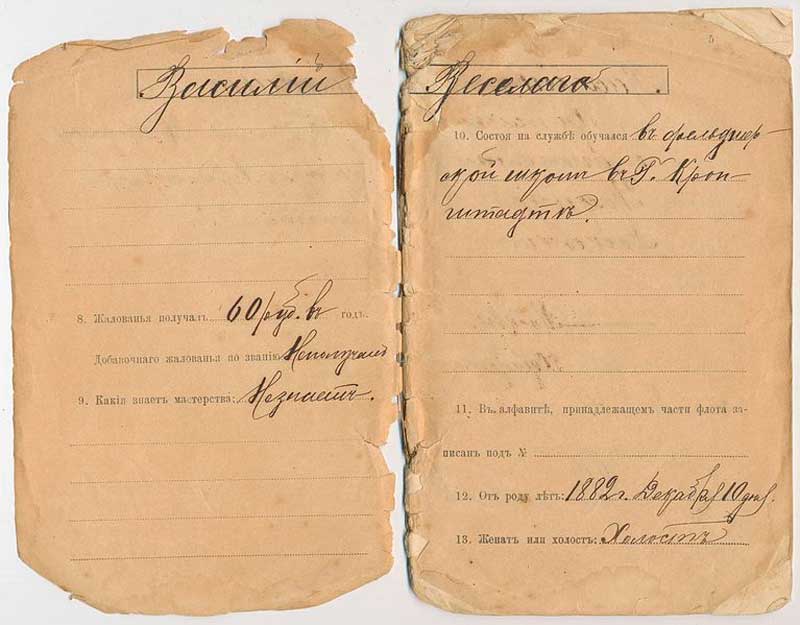 Василій
8. Жалованья получалъ 60 руб. въ годъ.
Добавочнаго жалованья по званію Неполучалъ
9. Какія знаетъ мастерства: Незнаетъ.
5
Веселаго
10. Состоя на службѣ обучался въ фельдшер-
ской школѣ въ г. Крон-
штадтѣ.
11. Въ алфавитѣ, принадлежащемъ части флота за-
писанъ подъ №
12. Отъ роду лѣтъ: 1882 г. Декабря 10 дня.
13. Женатъ или холостъ: Холостъ